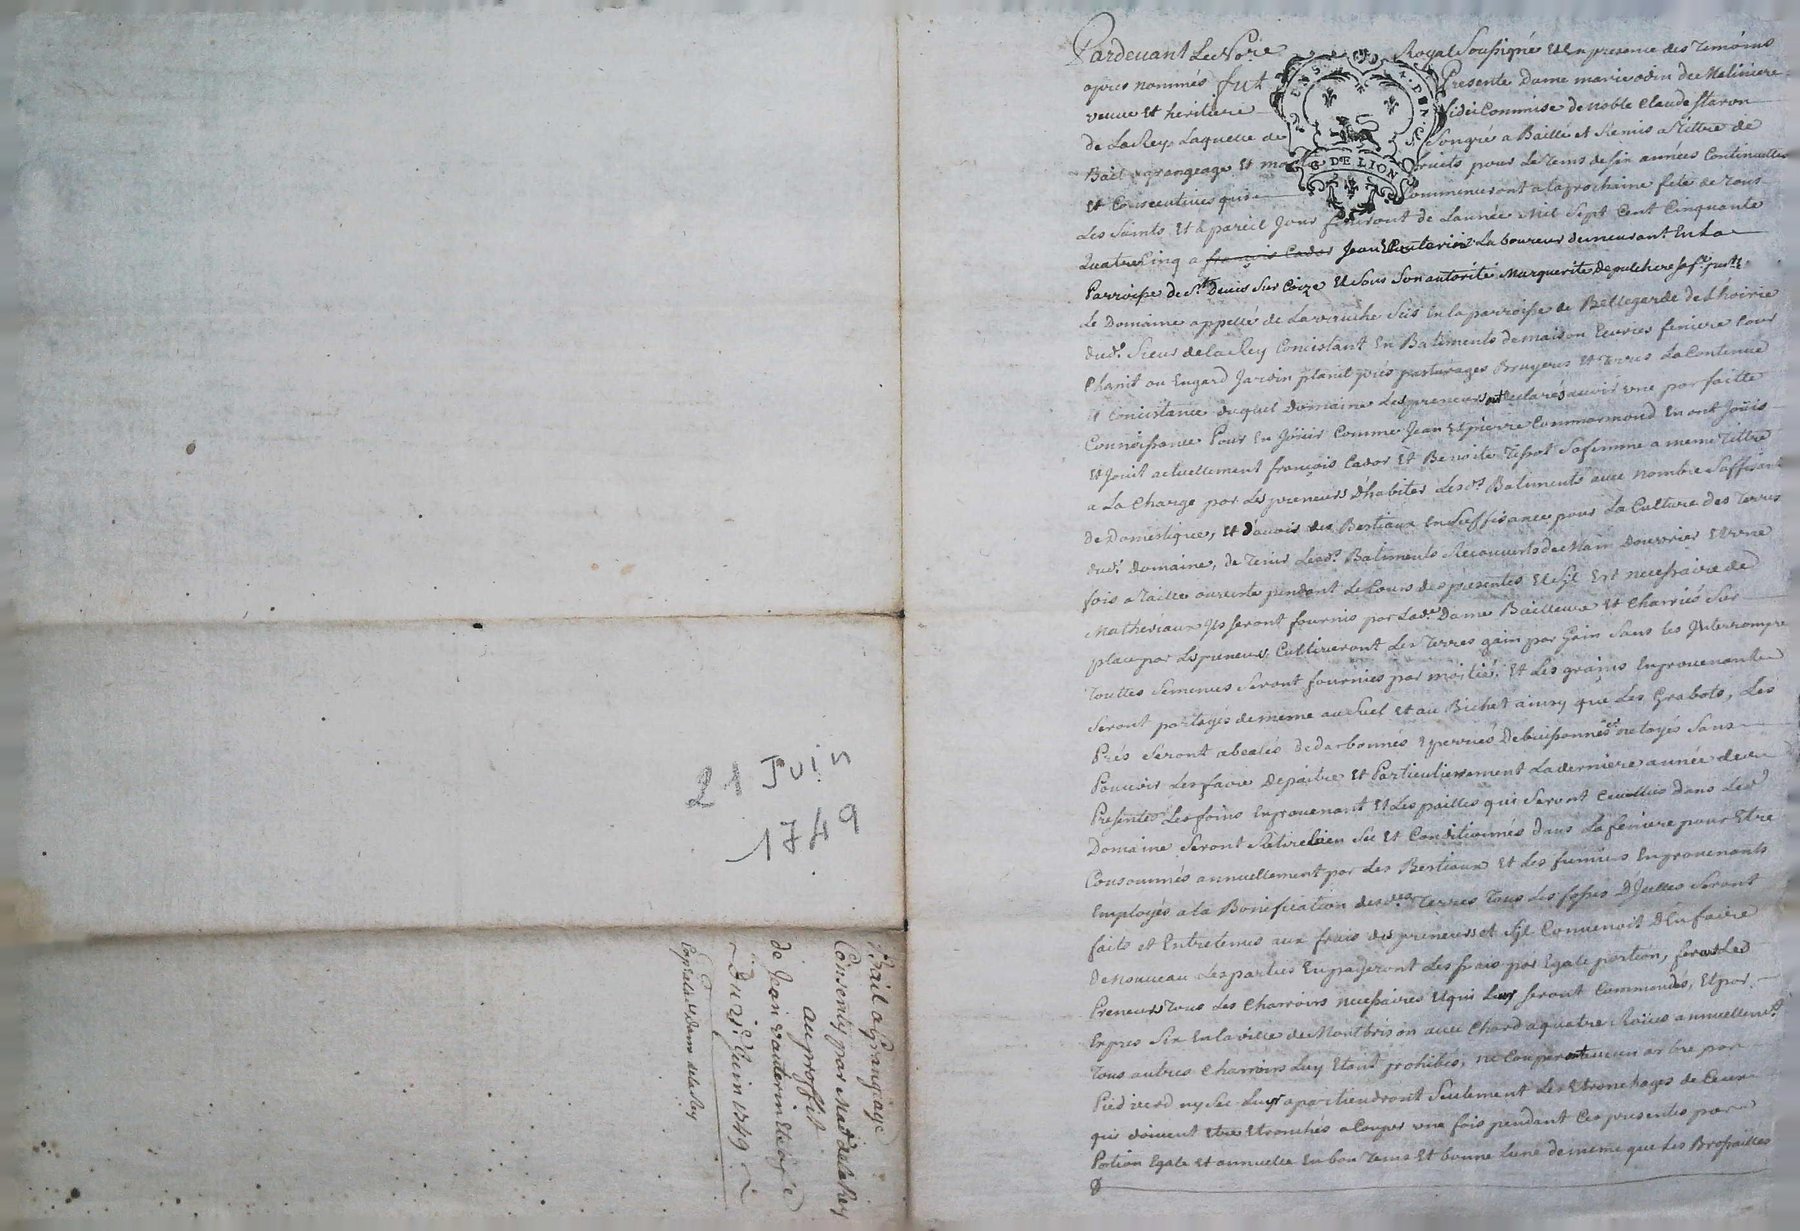 21 Juin
1749
Bail a Grangeage
Consenty par Mad. delaRey
au proffit
de Jean Vauterin et
Du 21e Juin 1749
Copie pr. Dame delaRey
Pardevant Le No.re Royal Soussigné Et En presence des Temoins
apres nommés fut Presente Dame marie odin de Meliniere
veuve Et heritiere fidei Commise de noble Claude Staron
de LaRey Laquelle de Songré a Baillé et Remis a Tittre de
Bail a grangeage Et moitié fruits pour Le Tems de six années Continuelles
Et Consecutives qui Commenceront a la prochaine fete de Tous
Les Saints Et a pareil Jour finiront de Lannée Mil Sept Cent Cinquante
Cinq a françois Cador Jean Laboureur demeurant En La
Parroisse de St. Denis Sur Coize Et Sous Son autorité Marguerite
Le Domaine appellé de Laveruche Sis En la parroisse de Bellegarde de Lhoirie
dud. Sieur de la Rey Concistant En Batiments de maison Ecuries feniere Cour
Chanit ou Engard Jardin planit prés pasturages Bruyeres Et Terres La Contenue
Et Concistance duquel Domaine Les preneurs ont declarés avoir une parfaitte
Connoissance Pour En Jöüir Comme Jean Et pierre Commarmond En ont Joüis
Et Jouit actuellement françois Cador Et Benoite Tissot Sa femme a meme Tittre
a La Charge par Les preneurs D'habiter Lesd. Batiments avec nombre Suffisant
de Domestiques, Et d'avoir des Bestiaux En Suffisance pour La Culture des Terres
dud. Domaine, de Tenir Lesd. Batiments Recouverts de Main Douvrier Et une
fois a Taille ouverte pendant Le Cours des presentes Et Sil Est necessaire de
Matheriaux Ils seront fournis par Lade. Dame Bailleuse Et Charriés Sur
place par Les preneurs Cultiveront Les Terres gain par Gain Sans Les Interrompre
Touttes Semences Seront fournies par moitié, Et Les grains En provenants
Seront partagés de meme au Suel Et au Bichet ainsy que Les Grabots, Les
Prés Seront abealés dedarbonnés Epierrés Debuissonnés et netoyés Sans
Pouvoir Les faire Depaitre Et Particulierement La derniere année des
Presentes Les foins En provenant Et Les pailles qui Seront Ceuillies dans Led.
Domaine Seront Retirés bien Sec Et Conditionnés dans La feniere pour Etre
Consommés annuellement par Les Bestiaux Et Les fumiers En provenants
Employés a la Bonification desd. Terres Tous Les fossés D'Icelles Seront
faits et Entretenus aux frais des preneurs et Sil Convenoit D'En faire
De nouveau Les parties En payeront Les frais par Egale portion, feront Led.
Preneurs Tous Les Charrois necessaires Et qui Luy Seront Commandés, Et par
Expres Six En la ville de Montbrison avec Chard a quatre Roües annuellement
Tous autres Charrois Luy Etant prohibés, ne Couperont aucun arbre par
Pied verd ny Sec Luy apartiendront Seulement Les Etronchages de Ceux
qui doivent Etre Etronchés a Couper une fois pendant Ces presentes par
Portion Egale Et annuelle En bon Tems Et bonne Lune de meme que Les Brossailles